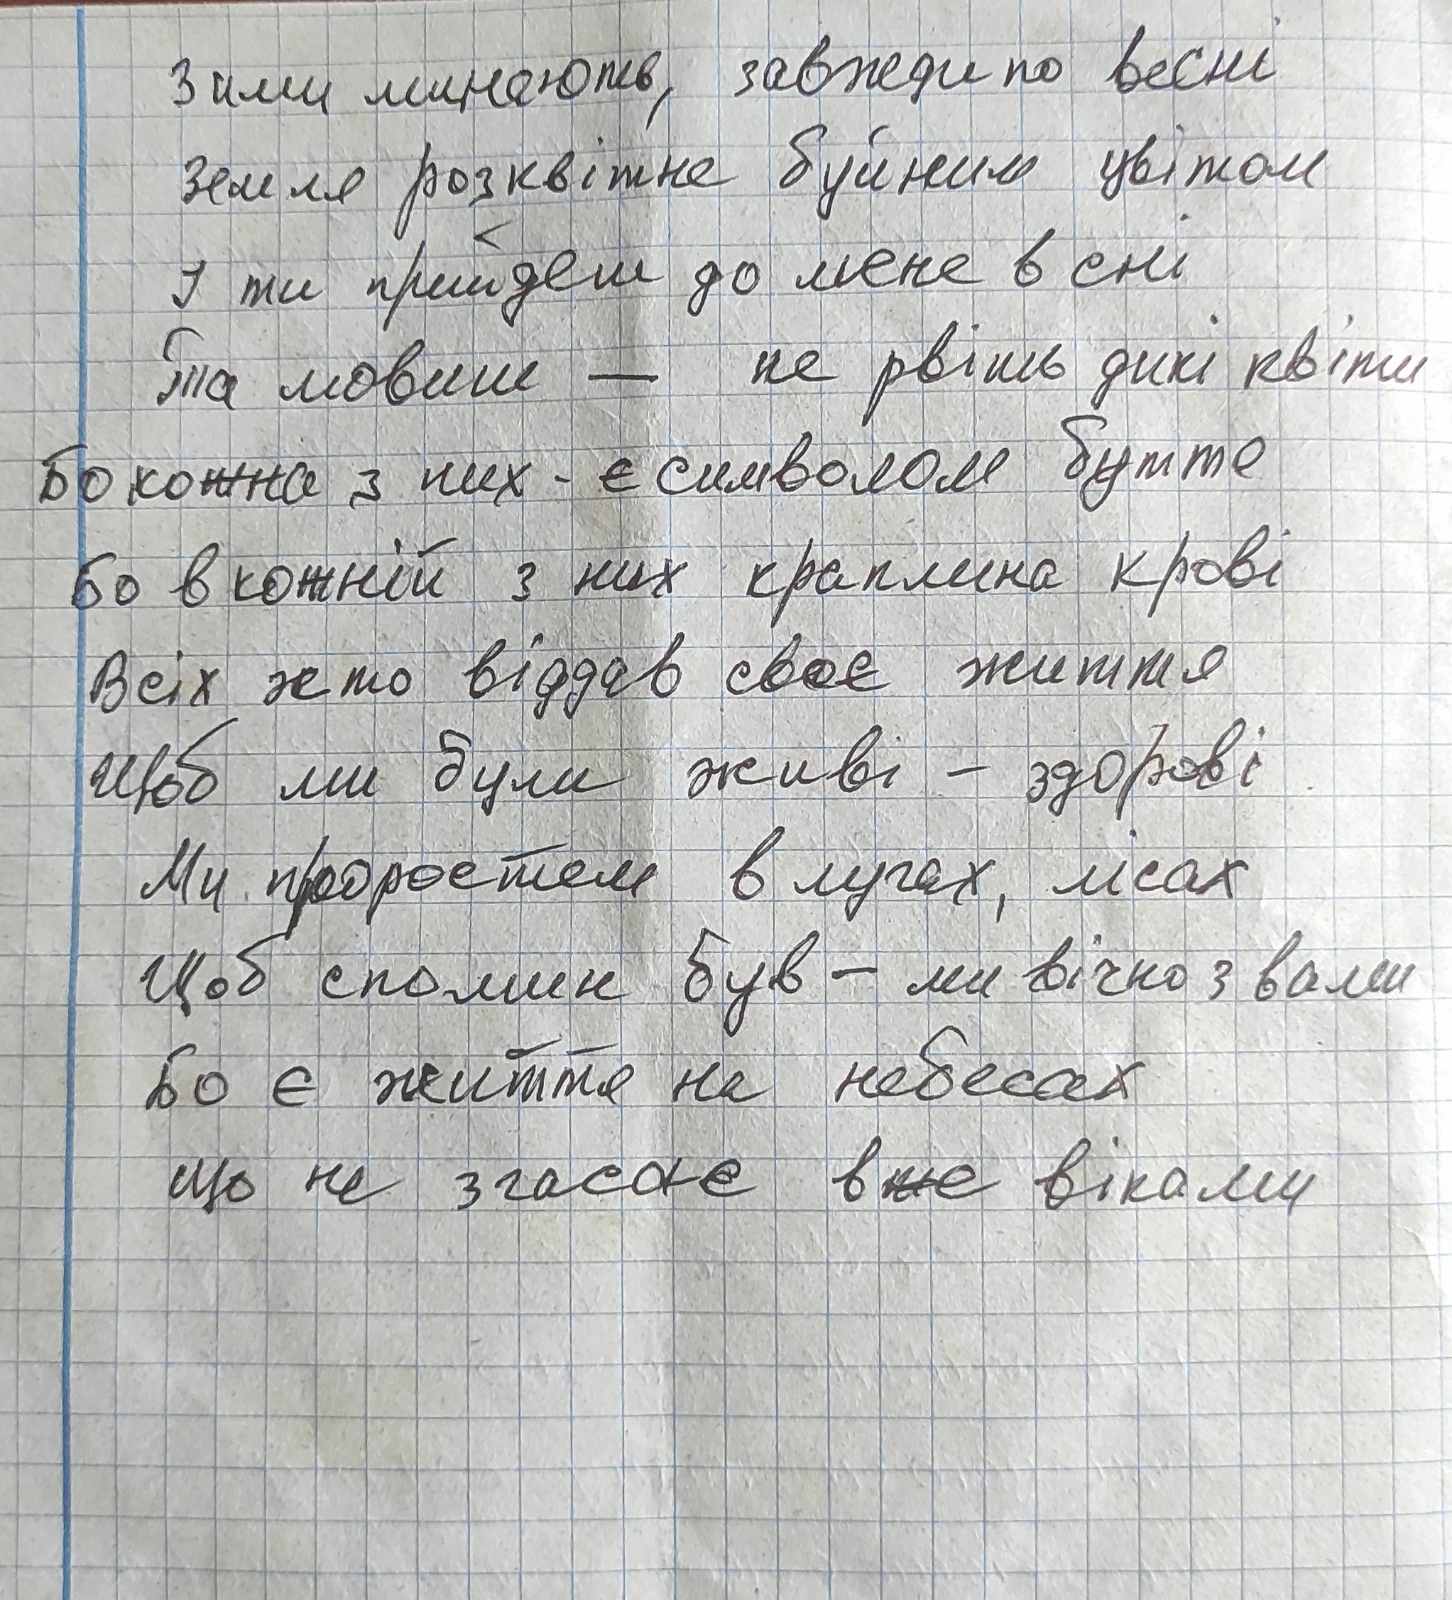 Зими минають, завжди по весні
Земля розквітне буйним цвітом
І ти прийдеш до мене в сні
Та мовиш — не рвіть дикі квіти
Бо кожна з них - є символом буття
Бо в кожній з них краплина крові
Всіх хто віддав своє життя
Щоб ми були живі - здорові
Ми проростем в лугах, лісах
Щоб спомин був - ми вічно з вами
Бо є життя на небесах
Що не згасає вже віками